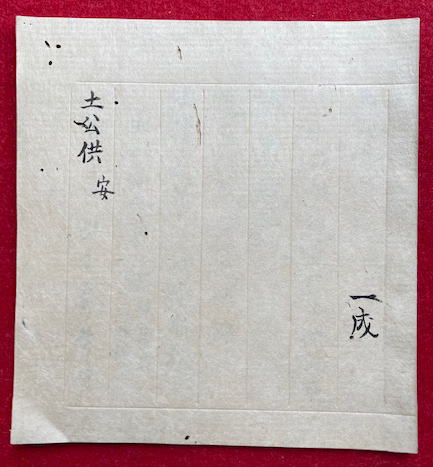 一成
土公供 安